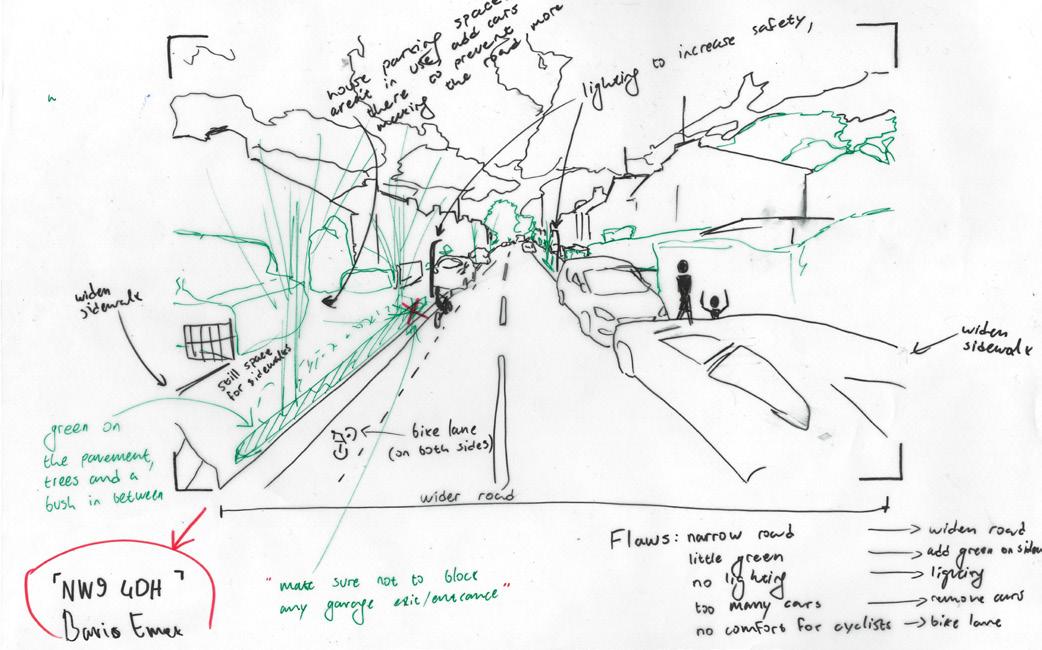 house parking space
area's in use, add cars
there to prevent
meeting the road more
lighting to increase safety,
widen
sidewalk
widen
sidewalk
still space
for sidewalks
green on
the pavement,
trees and a
bush in between
bike lane
(on both sides)
wider road
Flaws: narrow road → widen road
little green → add green on sidew
no lighting → lighting
too many cars → remove cars
no comfort for cyclists → bike lane
"make sure not to block
any garage exit/entrance"
「NW9 4DH」
Baris Emex